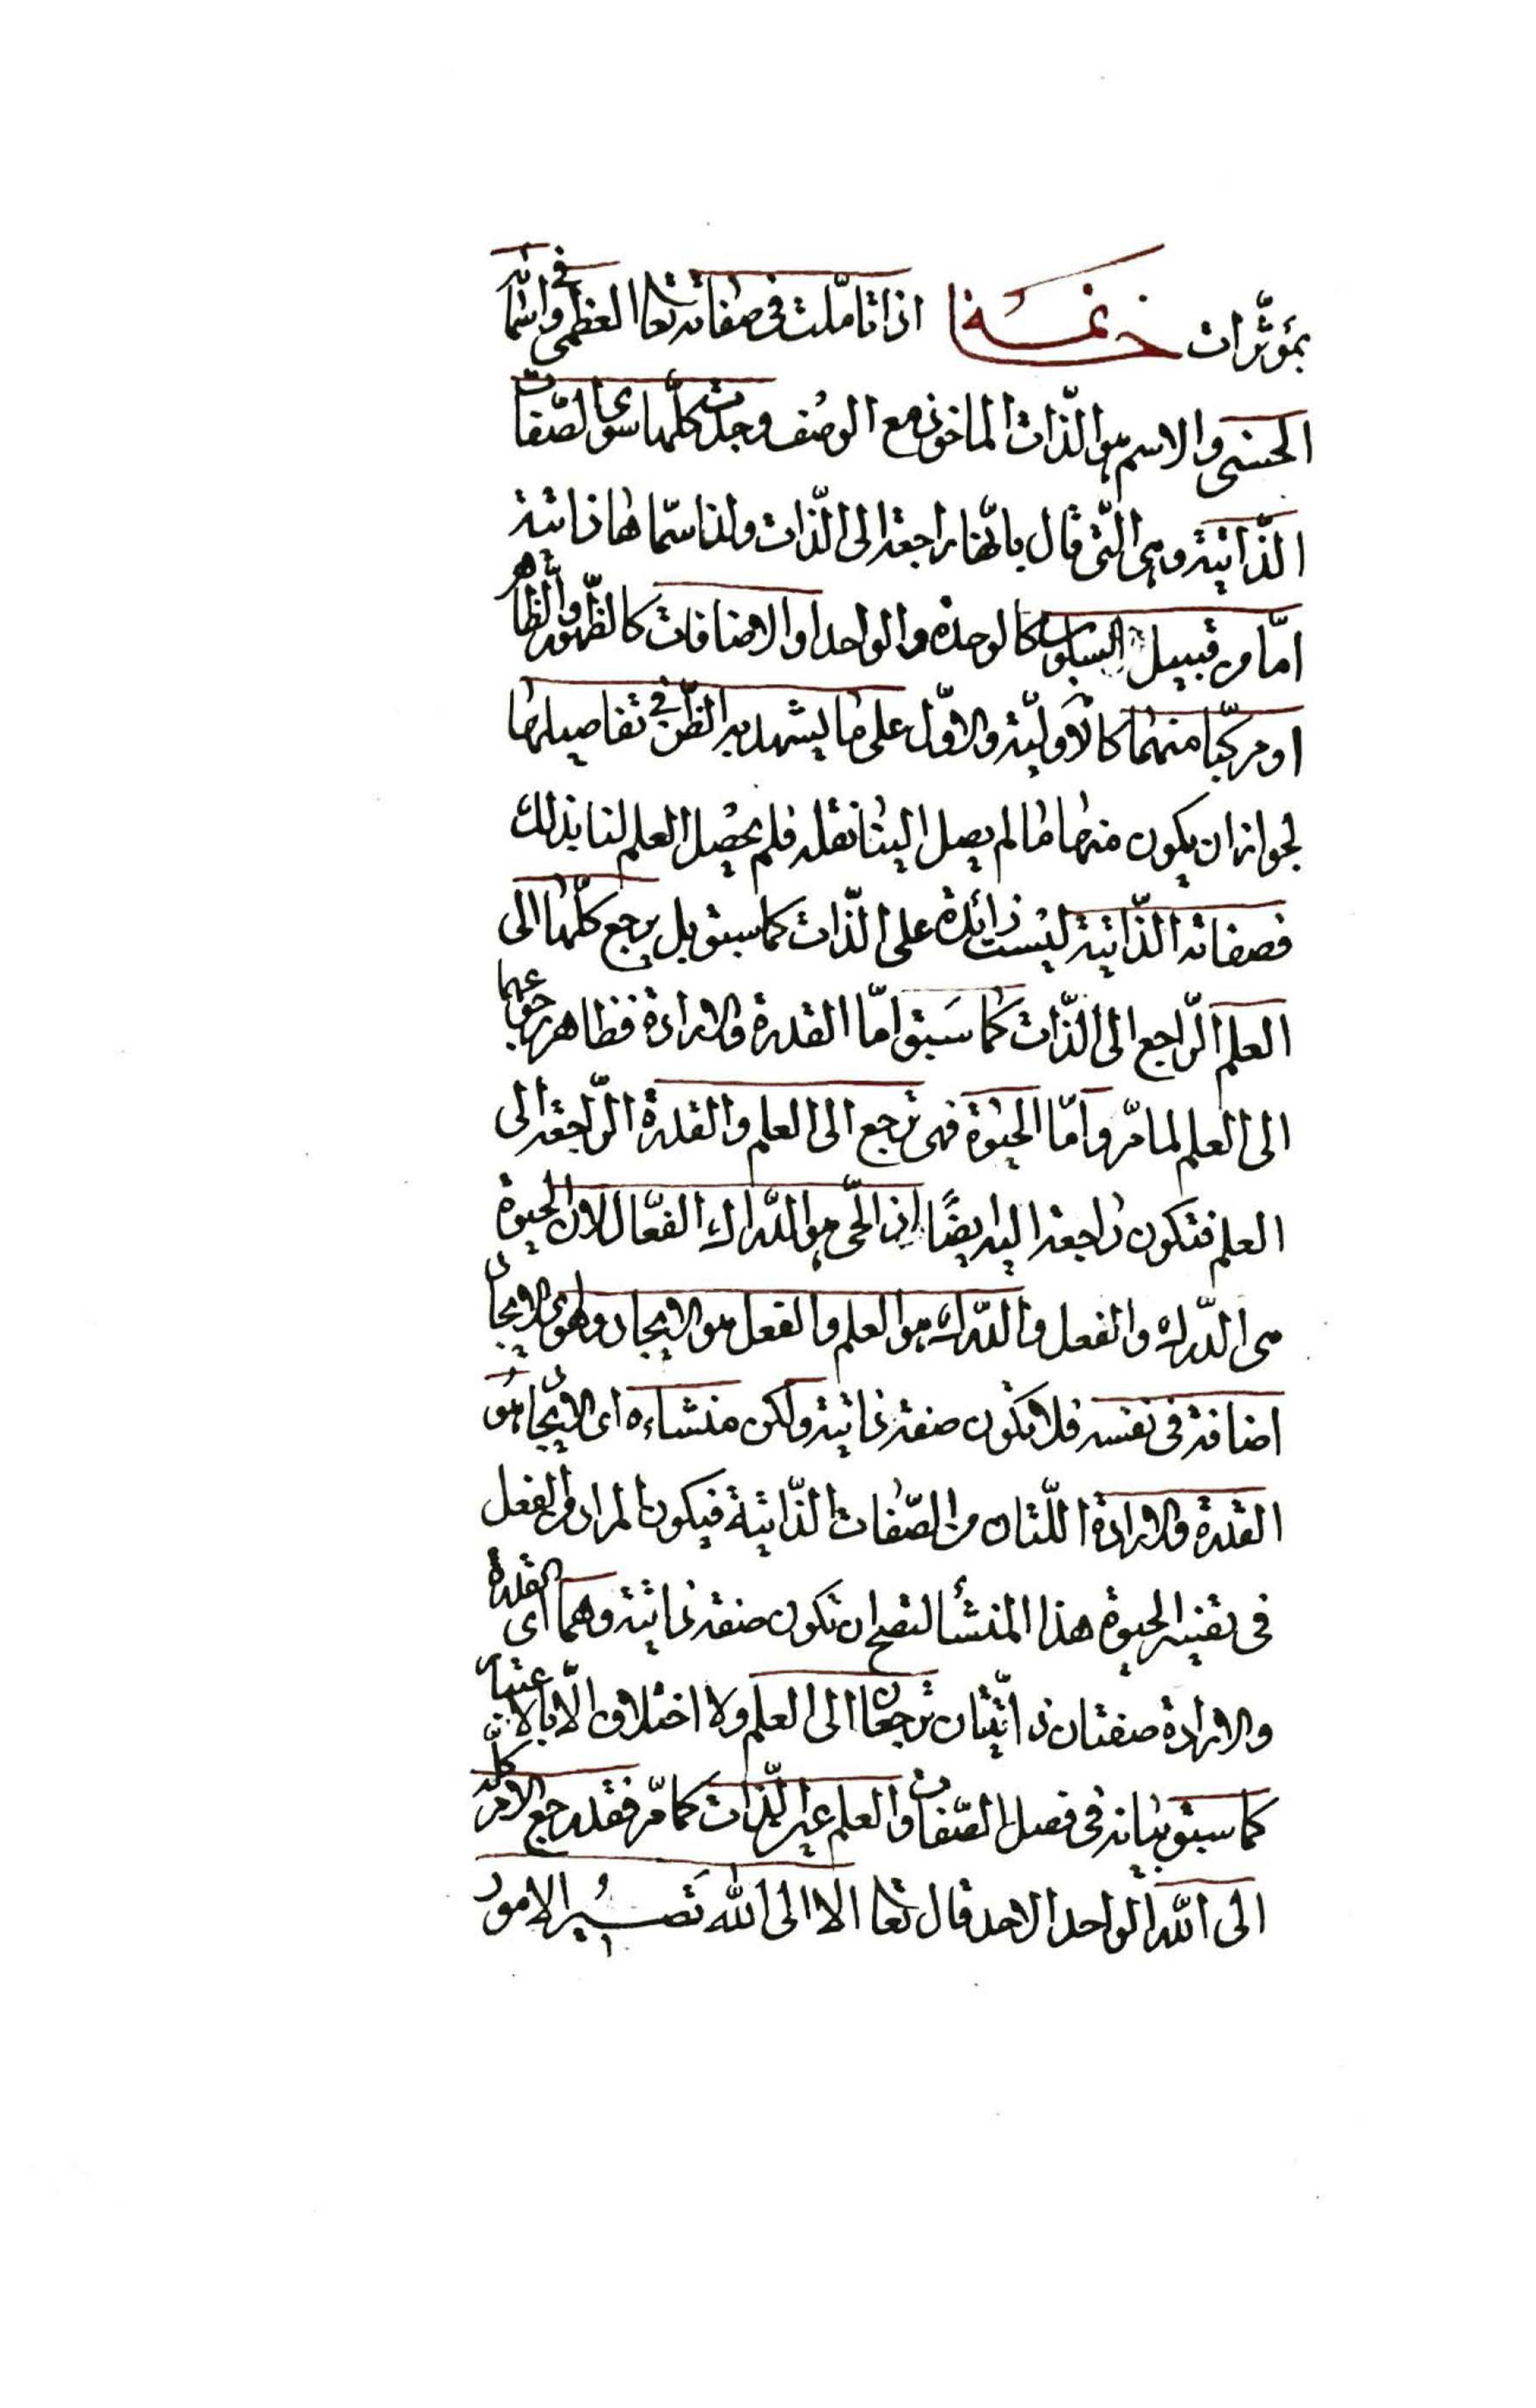 بمؤثّرات خاتمة اذا تامّلت فى صفاته تعا العظمى وفى اسمائه
الحسنى والاسم هو الذّات الماخوذ مع الوصف وجدت كلّها سوى الصّفات
الذّاتية وهى الّتى قال بانّها راجعة الى الذّات ولذا سمّاها ذاتية
امّا من قبيل السلوب كالوحدة والواحد او الاضافات كالظّهور والظّاهر
او مركّبا منهما كالاوليّة والاوّل على ما يشهد به الظّن فى تفاصيلها
لجواز ان يكون منها ما لم يصل الينا نقله فلم يحصل العلم لنا بذلك
فصفاته الذّاتية ليست زائدة على الذّات كما سبق بل يرجع كلّها الى
العلم الرّاجع الى الذّات كما سَبق امّا القدرة والارادة فظاهر رجوعهما
الى العلم لما مرّ وامّا الحيوة فهى ترجع الى العلم والقدرة الرّاجعة الى
العلم فتكون راجعة اليه ايضًا اذ الحّى هو الدّراك الفعّال لان الحيوة
هى الدّرك والفعل والدّرك هو العلم والفعل هو الايجاد وهو اى الايجاد
اضافة فى نفسه فلا تكون صفة ذاتية ولكن منشاءه اى الايجاد هُو
القدرة والارادة اللّتان من الصّفات الذّاتية فيكون المراد من الفعل
فى تفسير الحيوة هذا المنشأ لتصح ان تكون صفة ذاتية وهما اى القدرة
والارادة صفتان ذاتّيتان ترجعان الى العلم ولا اختلاف الّا بالاعتبار
كما سبق بيانه فى فصل الصّفات والعلم عين الذّات كما مرّ فقد رجع الامر كلّه
الى الله الواحد الاحد قال تعا الا الى الله تَصيُر الامور